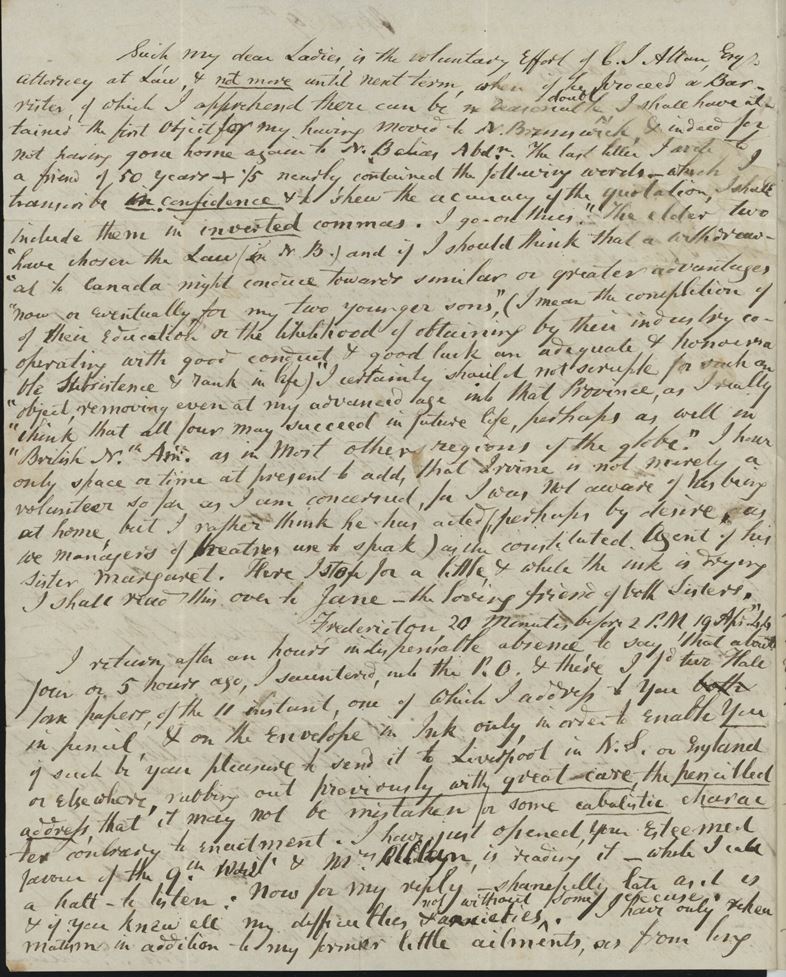 Such my dear Ladies, is the voluntary Effort of C. J Allan, Esqr.
attorney at Law, & not more until next term, when if he proceed a Bar-
rister, of which I apprehend there can be no reasonable doubt I shall have at-
tained the first Object for my having moved to N. Brunswick, & indeed for
not having gone home again to N. Abdn. The last letter I wrote to
a friend of 50 years + 75 nearly contained the following words – which I
transcribe in confidence & to shew the accuracy of the quotation, I shall
include them in inverted commas. I go on thus. "The elder two
"have chosen the Law (in N. B.) and if I should think that a withdraw-
"al to Canada might conduce towards similar or greater advantages
"now or eventually for my two younger sons", (I mean the completion of
of their Education or the likelihood of obtaining by their industry co-
operating with good conduct & good luck an adequate & honoura
ble Subsistence & rank in life) "I certainly should not scruple for such an
"object, removing even at my advanced age into that Province, as I really
"think that all four may succeed in future life, perhaps as well in
"British N.th Am. as in most other regions of the globe." I have
only space or time at present to add, that Irvine is not merely a
volunteer so far as I am concerned, for I was not aware of his being
at home, but I rather think he has acted (perhaps by desire, as
we managers of Theatres use to speak) as the constituted Agent of his
Sister Margaret. Here I stop for a little, & while the ink is drying
I shall read this over to Jane – the loving friend of both Sisters.
Fredericton 20 Minutes before 2 P.M. 19 Apr
I return, after an hours indispensable absence to say that about
four or 5 hours ago, I sauntered into the P.O. & there I two
papers, of the 11 instant, one of which I address to You both
in pencil, & on the Envelope in Ink only, in order to enable You
if such be your pleasure to send it to Liverpool in N. S. or England
or elsewhere, rubbing out previously with great care, the pencilled
address, that it may not be mistaken for some cabalistic charac
ter contrary to Enactment. I have just opened, your Esteemed
favour of the 9th & Mrs Allan, is reading it – while I call
a halt – to listen. Now for my reply – shamefully late as it is
& if you knew all my difficulties & anxieties, not without some excuse. I have only rheu
matism in addition to my former little ailments, as from long